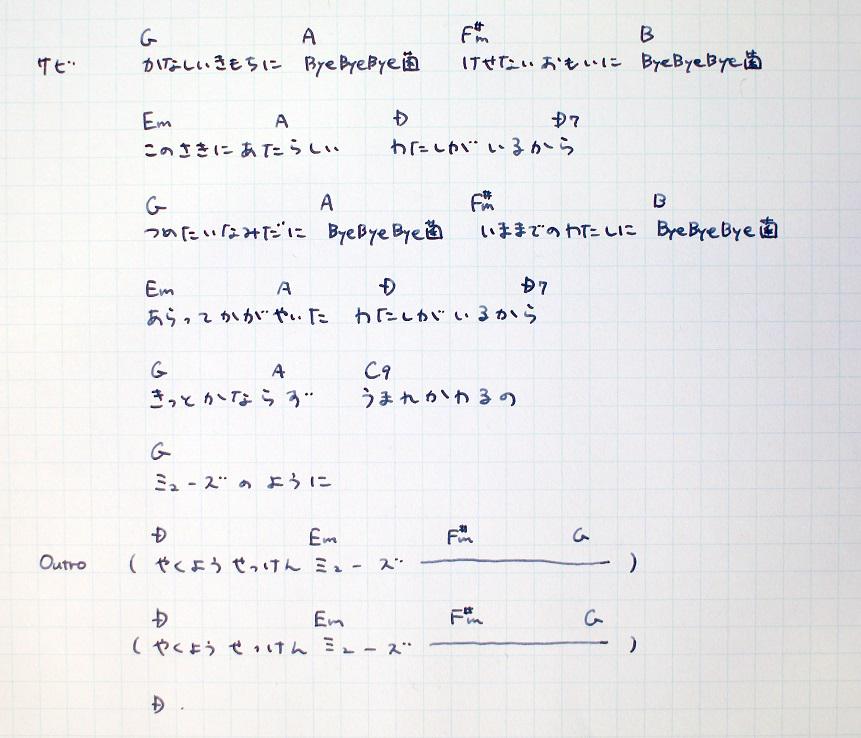 G A F#m B
サビ かなしいきもちに ByeByeBye菌 けせないおもいに ByeByeBye菌
Em A D D7
このさきにあたらしい わたしがいるから
G A F#m B
つめたいなみだに ByeByeBye菌 いままでのわたしに ByeByeBye菌
Em A D D7
あらってかがやいた わたしがいるから
G A C9
きっとかならず うまれかわるの
G
ミューズのように
D Em F#m G
Outro ( やくようせっけん ミューズ ― )
D Em F#m G
( やくようせっけん ミューズ ― )
D .